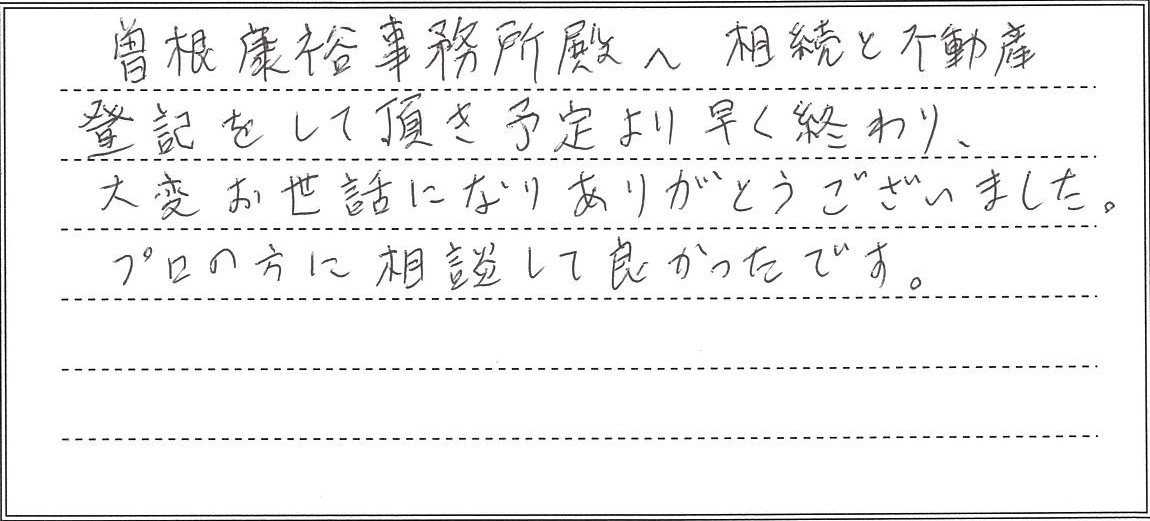 曽根康裕事務所殿へ 相続と不動産
登記をして頂き予定より早く終わり、
大変お世話になりありがとうございました。
プロの方に相談して良かったです。